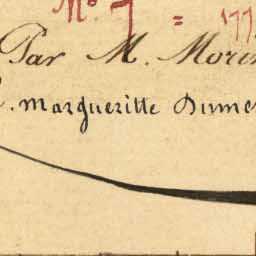 No 7 = 177
Par M. Morin
. Margueritte Dume